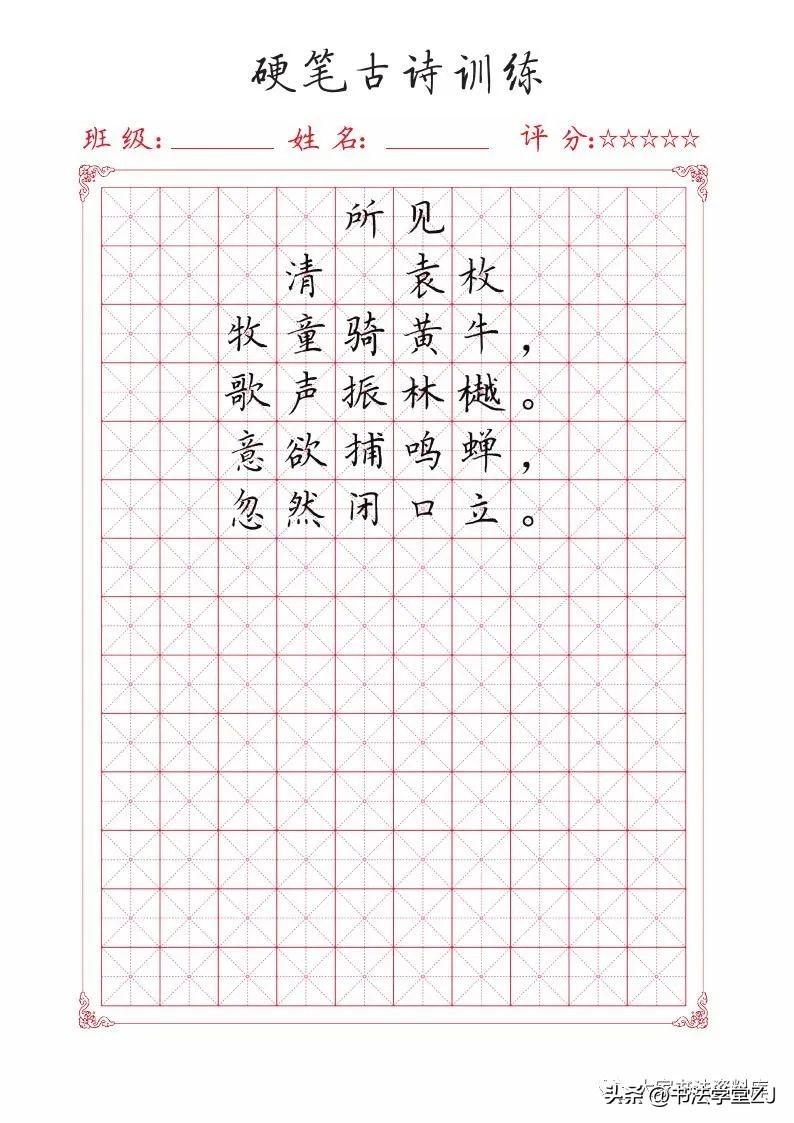 硬笔古诗训练
班级：________ 姓名：________ 评分：☆☆☆☆☆
所见
清 袁枚
牧童骑黄牛，
歌声振林樾。
意欲捕鸣蝉，
忽然闭口立。
大家书法资料库
头条@书法学堂ZJ